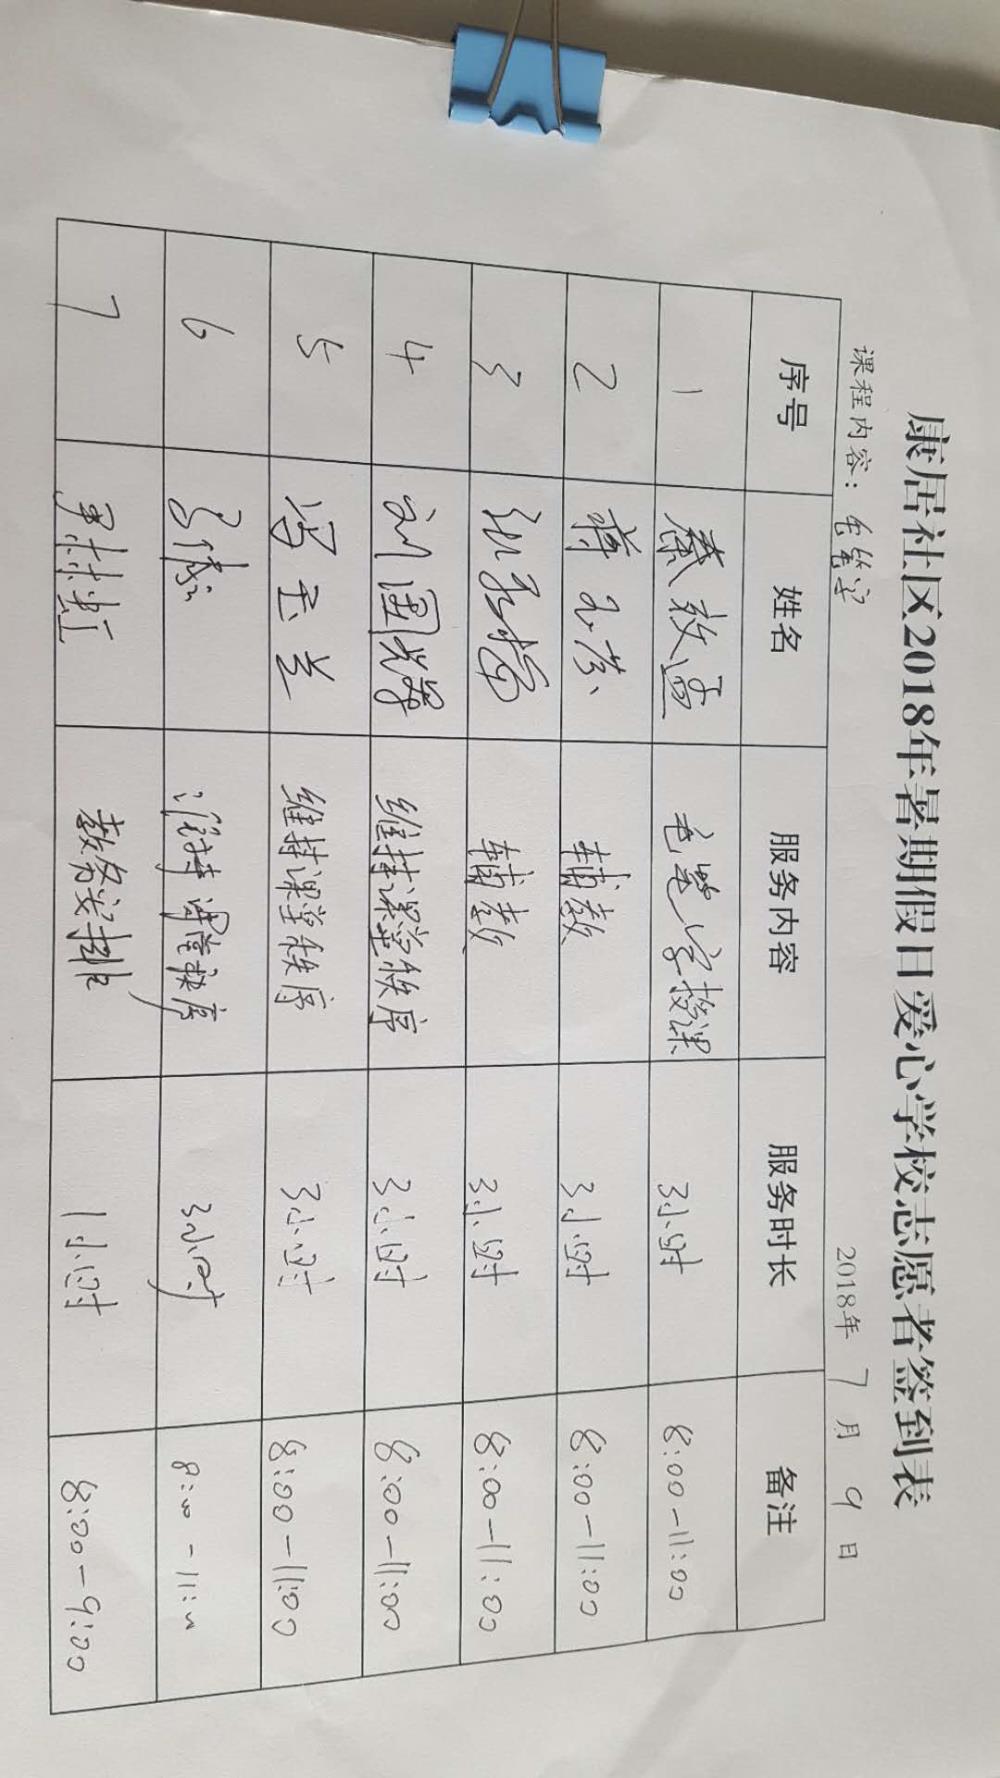 康居社区2018年暑期假日爱心学校志愿者签到表
课程内容：毛笔字 2018年 7 月 9 日
序号 姓名 服务内容 服务时长 备注
1 秦效遹 毛笔字授课 3小时 8:00-11:00
2 蒋 辅教 3小时 8:00-11:00
3 辅教 3小时 8:00-11:00
4 刘国辉 维持课堂秩序 3小时 8:00-11:00
5 冯玉兰 维持课堂秩序 3小时 8:00-11:00
6 维持课堂秩序 3小时 8:00-11:00
7 教务安排 1小时 8:00-9:00